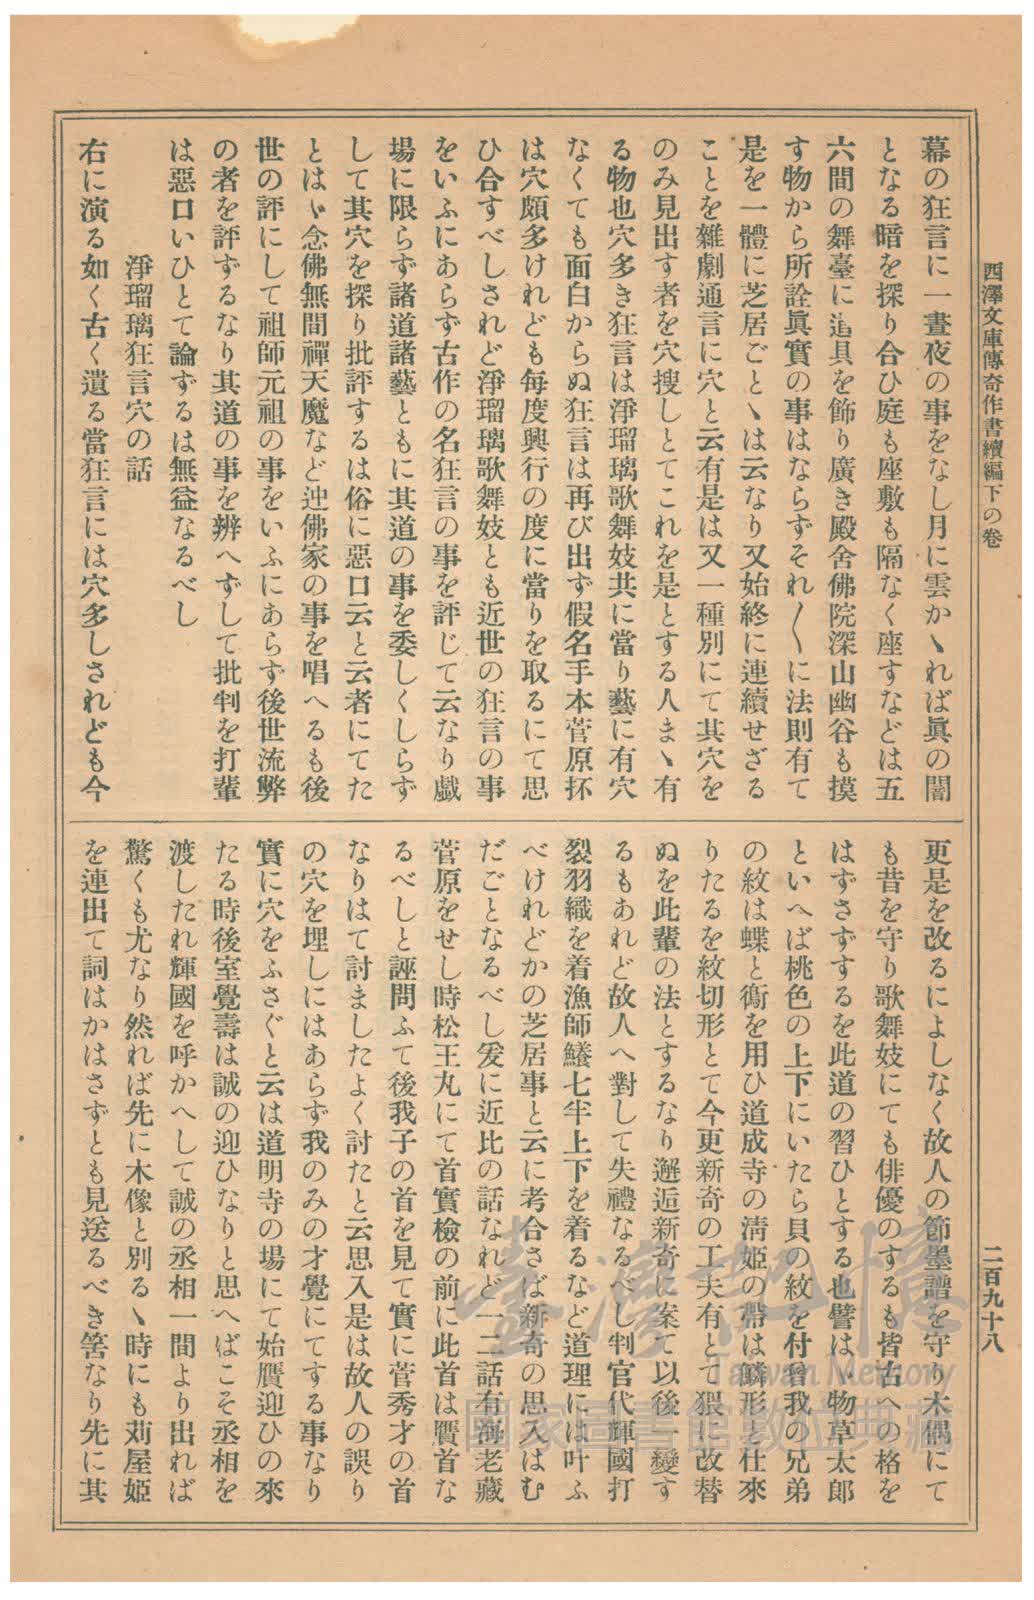 西澤文庫傳奇作書續編下の卷
二百九十八
幕の狂言に一晝夜の事をなし月に雲かゝれば眞の闇
となる暗を探り合ひ庭も座敷も隔なく座すなどは五
六間の舞臺に造具を飾り廣き殿舍佛院深山幽谷も摸
す物から所詮眞實の事はならずそれ〳〵に法則有て
是を一體に芝居ごとゝは云なり又始終に連續せざる
ことを雜劇通言に穴と云有是は又一種別にて其穴を
のみ見出す者を穴搜しとてこれを是とする人まゝ有
る物也穴多き狂言は淨瑠璃歌舞妓共に當り藝に有穴
なくても面白からぬ狂言は再び出ず假名手本菅原抔
は穴頗多けれども每度興行の度に當りを取るにて思
ひ合すべしされど淨瑠璃歌舞妓とも近世の狂言の事
をいふにあらず古作の名狂言の事を評じて云なり戲
場に限らず諸道諸藝ともに其道の事を委しくしらず
して其穴を探り批評するは俗に惡口云と云者にてた
とはゞ念佛無間禪天魔など迚佛家の事を唱へるも後
世の評にして祖師元祖の事をいふにあらず後世流弊
の者を評ずるなり其道の事を辨へずして批判を打輩
は惡口いひとて論ずるは無益なるべし
淨瑠璃狂言穴の話
右に演る如く古く遺る當狂言には穴多しされども今
更是を改るによしなく故人の節墨譜を守り木偶にて
も昔を守り歌舞妓にても俳優のするも皆古への格を
はずさずするを此道の習ひとする也譬はゞ物草太郎
といへば桃色の上下にいたら貝の紋を付曾我の兄弟
の紋は蝶と鵆を用ひ道成寺の淸姬の帶は鱗形と仕來
りたるを紋切形とて今更新奇の工夫有とて猥に改替
ぬを此輩の法とするなり邂逅新奇に案て以後一變す
るもあれど故人へ對して失禮なるべし判官代輝國打
裂羽織を着漁師鱶七半上下を着るなど道理には叶ふ
べけれどかの芝居事と云に考合さば新奇の思入はむ
だごとなるべし爰に近比の話なれど一二話有海老藏
菅原をせし時松王丸にて首實檢の前に此首は贋首な
るべしと誣問ふて後我子の首を見て實に菅秀才の首
なりはて討ましたよく討たと云思入是は故人の誤り
の穴を埋しにはあらず我のみの才覺にてする事なり
實に穴をふさぐと云は道明寺の場にて始贋迎ひの來
たる時後室覺壽は誠の迎ひなりと思へばこそ丞相を
渡したれ輝國を呼かへして誠の丞相一間より出れば
驚くも尤なり然れば先に木像と別るゝ時にも苅屋姬
を連出て詞はかはさずとも見送るべき筈なり先に其
臺灣記憶
Taiwan Memory
國家圖書館數位典藏